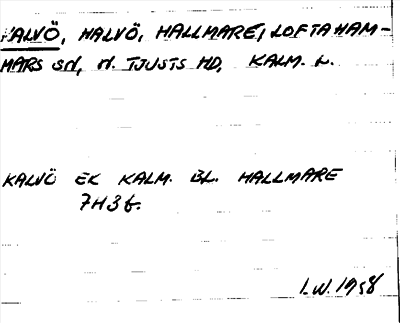 KALVÖ, HALVÖ, HALLMARE, LOFTAHAM-
MARS SN, N. TJUSTS HD, KALM. L.
KALVÖ EK KALM. BL. HALLMARE
7H3f.
I.W. 1958